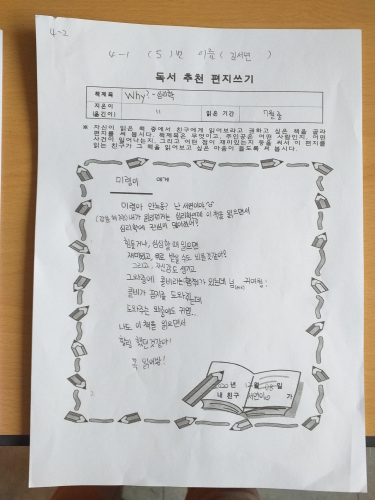 4-2
4-1 (5)번 이름 (김서연)
독서 추천 편지쓰기
책제목 Why? - 심리학
지은이 (옮긴이) " 읽은 기간 7월 중
※ 자신이 읽은 책 중에서 친구에게 읽어보라고 권하고 싶은 책을 골라
편지를 써 봅시다. 책제목은 무엇이고, 주인공은 어떤 사람인지, 어떤
사건이 일어나는지, 그리고 어떤 점이 재미있는지 등을 써서 이 편지를
읽는 친구가 그 책을 읽어보고 싶은 마음이 들도록 써 봅시다.
미령이 에게
미령아 안녕? 난 서연이야
내가 심리학인데 이 책을 읽으면서
심리학에 관심이
힘들거나, 심심할 때 읽으면
재미있고, 위로 받을 수도 있을것같아!
그리고, 자신감도 생기고
그와중에 콩비라는 있는데 넘 귀여워!
콩비가 도와주는데
도와주는 와중에도 귀엽
나도 이 책을 읽으면서
힐링 했던것같아!
꼭 읽어봐!
2020년 12월 일
내 친구 서연이 가